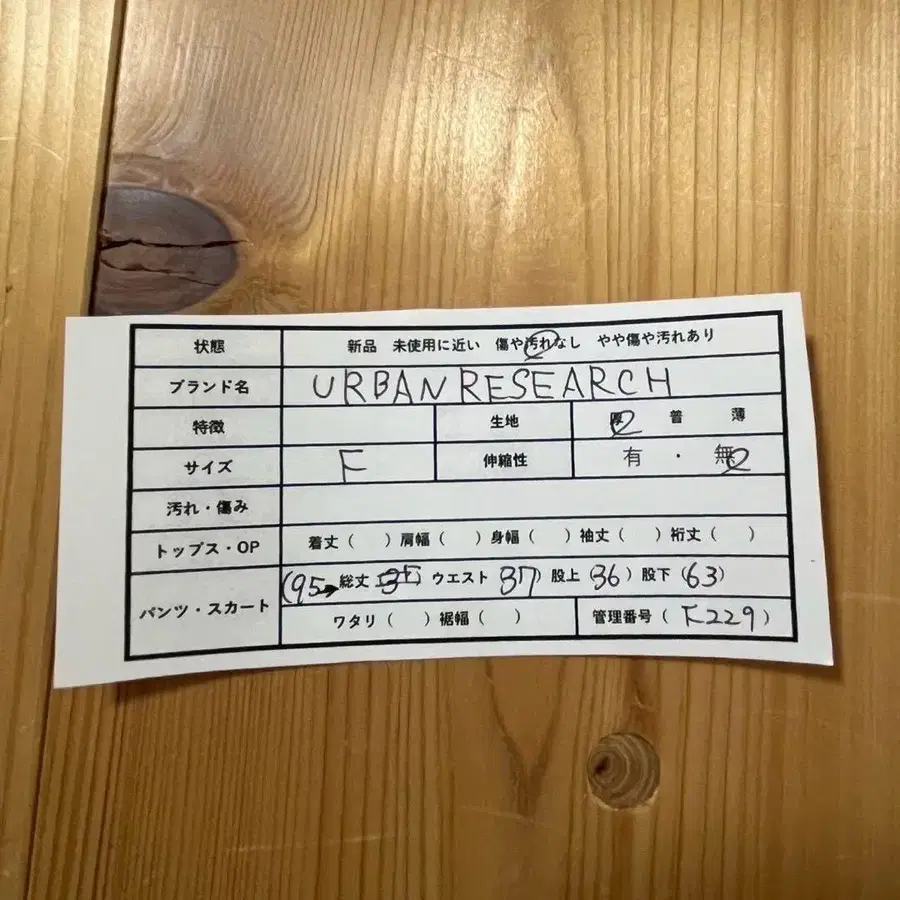 状態 新品 未使用に近い 傷や汚れなし やや傷や汚れあり
ブランド名 URBAN RESEARCH
特徴 生地 厚 普 薄
サイズ F 伸縮性 有・無
汚れ・傷み
トップス・OP 着丈( )肩幅( )身幅( )袖丈( )裄丈( )
パンツ・スカート (95→総丈 ウエスト 37)股上(36)股下(63)
ワタリ( )裾幅( ) 管理番号(F229)